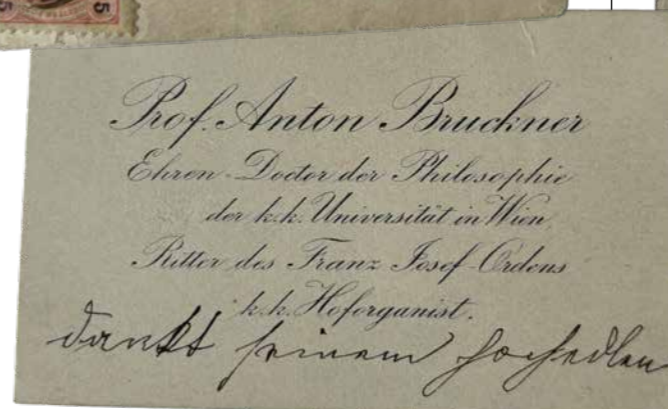 5
5
Prof. Anton Bruckner
Ehren-Doctor der Philosophie
der k.k. Universität in Wien,
Ritter des Franz Josef-Ordens
k.k. Hoforganist.
dankt seinem hochedlen